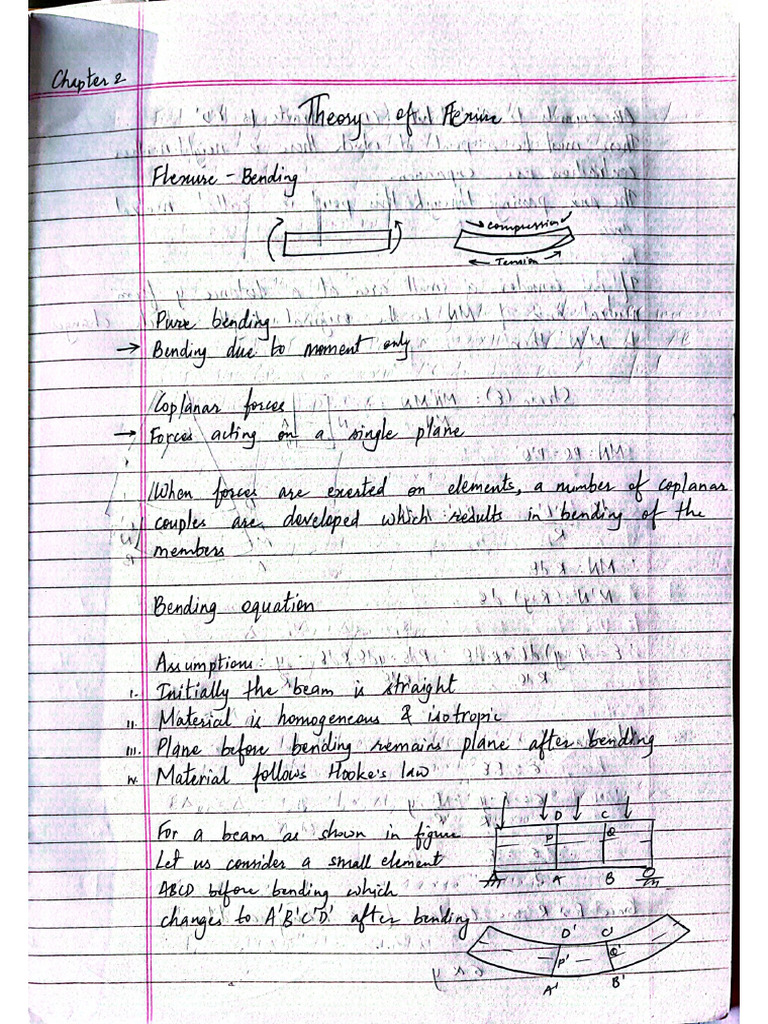 Chapter 2
Theory of Flexure
Flexure - Bending
compression
Tension
Pure bending
→ Bending due to moment only
Coplanar forces
→ Forces acting on a single plane
When forces are exerted on elements, a number of coplanar
couples are developed which results in bending of the
members
Bending equation
Assumptions:
i. Initially the beam is straight
ii. Material is homogeneous & isotropic
iii. Plane before bending remains plane after bending
iv. Material follows Hooke's law
For a beam as shown in figure
Let us consider a small element
ABCD before bending which
changes to A'B'C'D' after bending
D C
P Q
A B
D' C'
P' Q'
A' B'